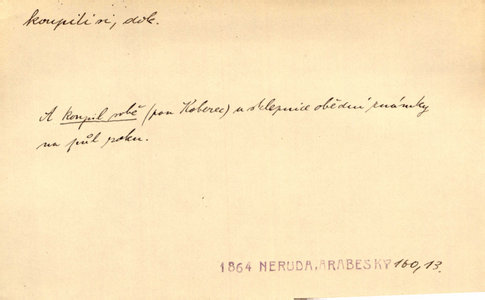 koupiti si, dok.
A koupil sobě (pan Koberec) u sklepnice obědní známky
na půl roku.
1864 NERUDA, ARABESKY 160,13.